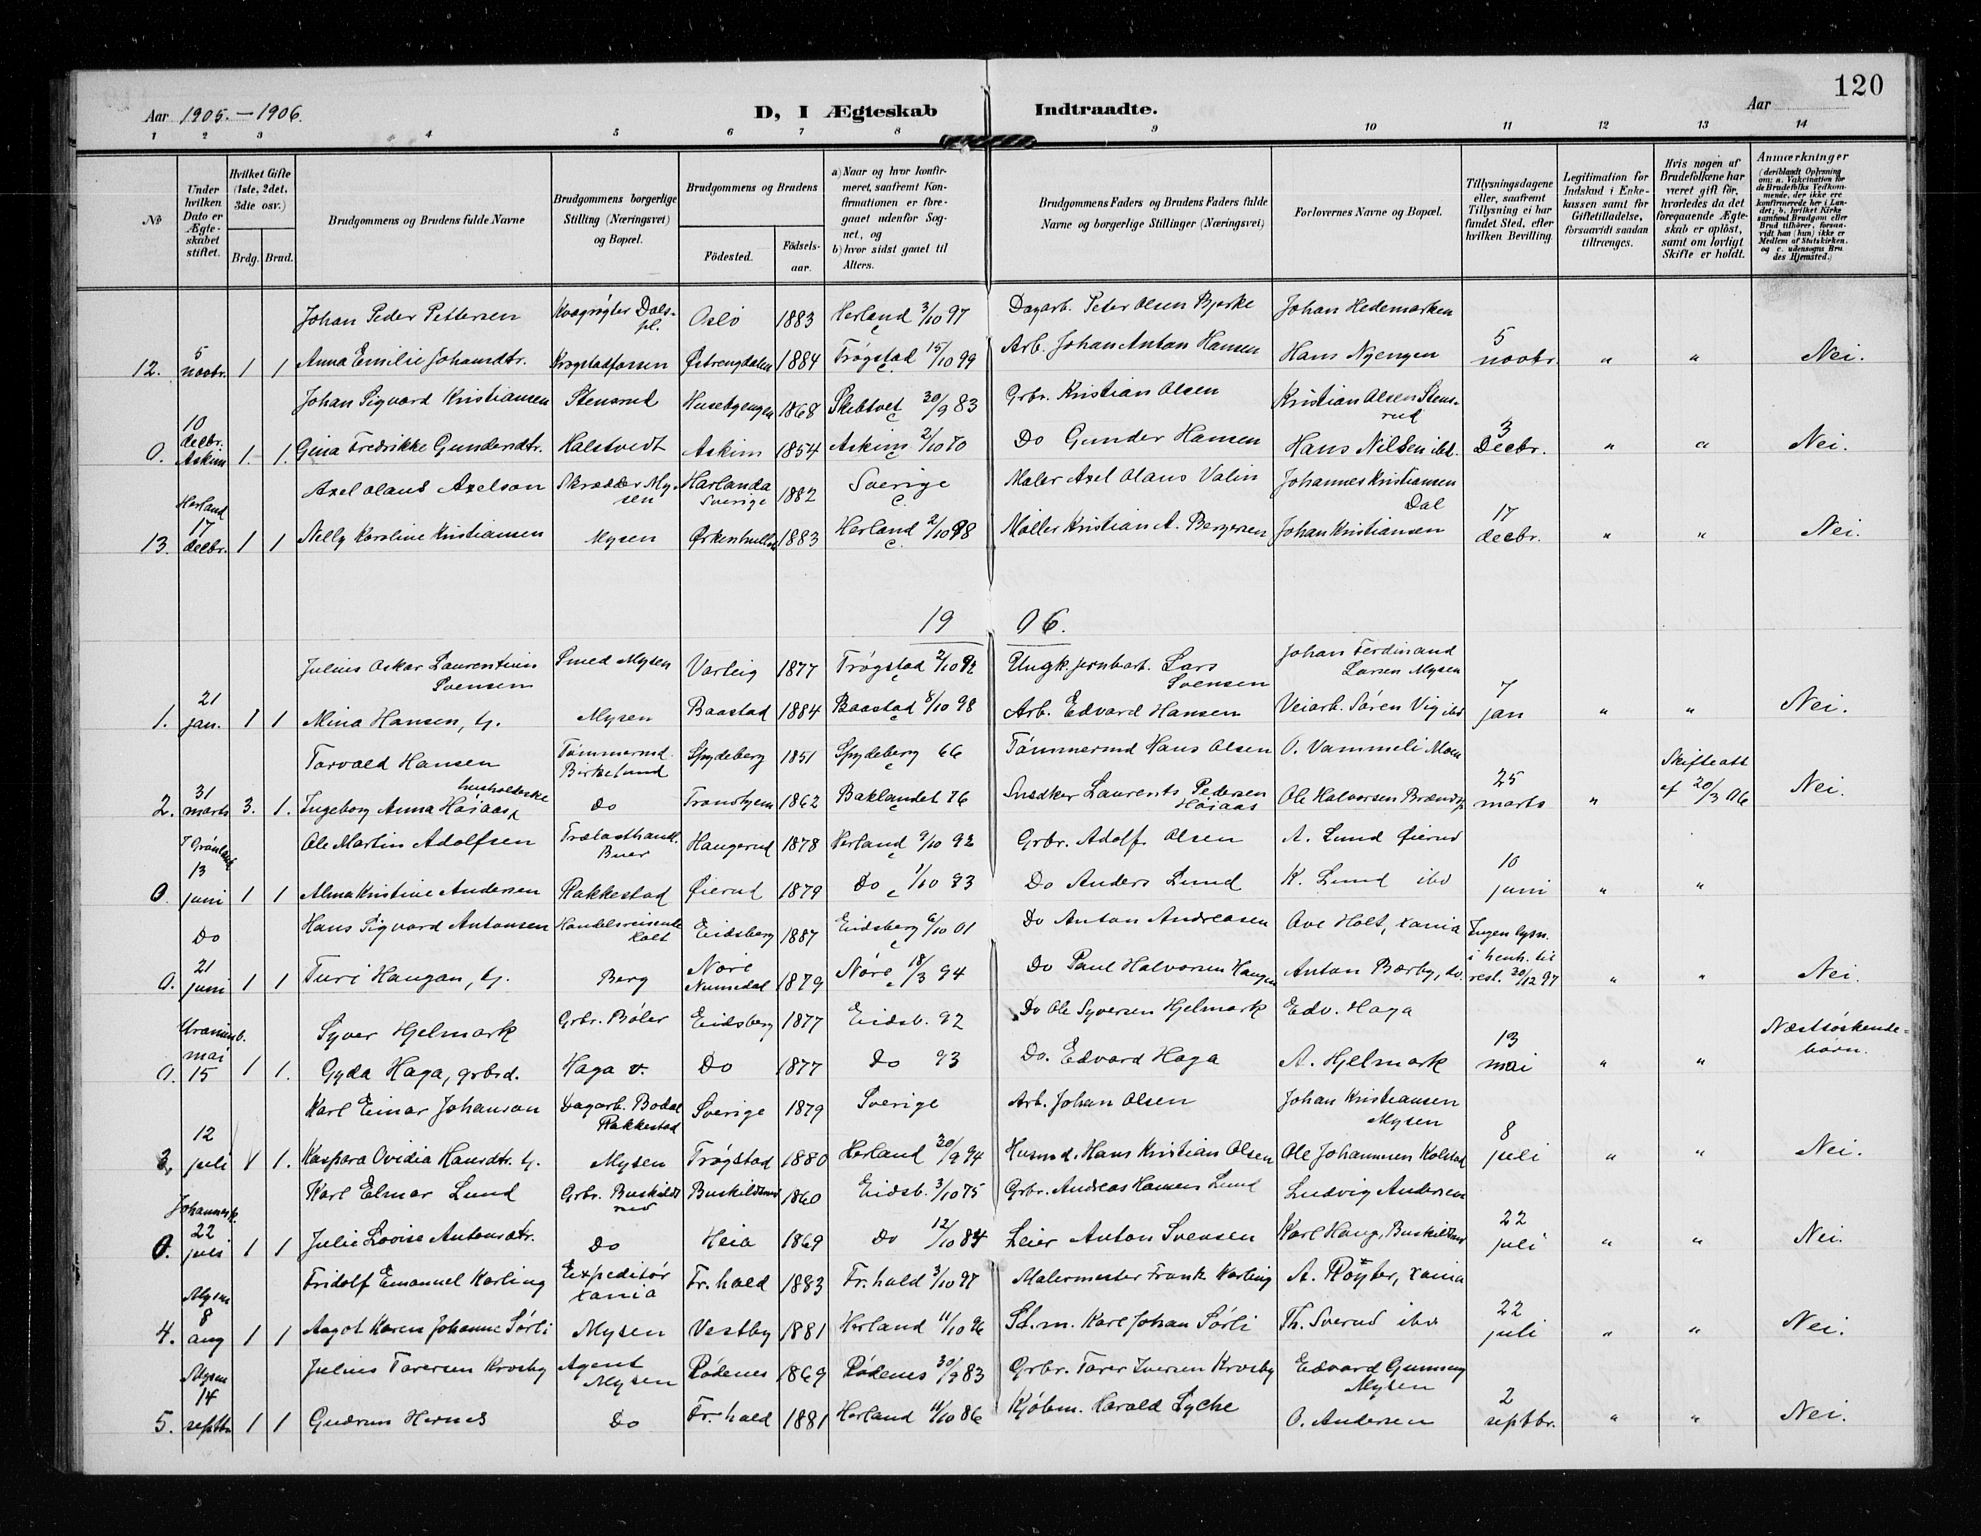 120
Aar 1905.—1906. D, I Ægteskab Indtraadte. Aar
1 2 3 4 5 6 7 8 9 10 11 12 13 14
No
Under hvilken Dato er Ægteskabet stiftet.
Hvilket Gifte (1ste, 2det, 3die osv.)
Brdg. Brud.
Brudgommens og Brudens fulde Navne
Brudgommens borgerlige Stilling (Næringsvei) og Bopæl.
Brudgommens og Brudens
Födested. Födselsaar.
a) Naar og hvor konfirmeret, saafremt Konfirmationen er foregaaet udenfor Sognet, og
b) hvor sidst gaaet til Alters.
Brudgommens Faders og Brudens Faders fulde Navne og borgerlige Stillinger (Næringsvei)
Forlovernes Navne og Bopæl.
Tillysningsdagene eller, saafremt Tillysning ei har fundet Sted, efter hvilken Bevilling.
Legitimation for Indskud i Enkekassen samt for Giftetilladelse, forsaavidt saadan tiltrænges.
Hvis nogen af Brudefolkene har været gift för, hvorledes da det foregaaende Ægteskab er oplöst, samt om lovligt Skifte er holdt.
Anmærkninger
(deriblandt Oplysning om: a. Vakcination for de Brudefolks Vedkommende, der ikke ere konfirmerede her i Landet; b. hvilket Kirkesamfund Brudgom eller Brud tilhörer, forsaavidt han (hun) ikke er Medlem af Statskirken. og c. udensogns Brudes Hjemsted.)
Johan Peder Pettersen Kvægrøgter Dalspl. Oslo 1883 Herland 3/10 97 Dagarb. Peter Olsen Bjerke Johan Hedemarken
12. 5 novbr. 1 1 Anna Emilie Johansdtr. Krogstadfossen Østrengdalen 1884 Trøgstad 15/10 99 Arb. Johan Anton Hansen Hans Nyengen 5 novbr. " " Nei.
Johan Sigvard Kristiansen Stensrud Husebyengen 1868 Skibtvet 30/9 83 Grbr. Kristian Olsen Kristian Olsen Stensrud
0. 10 decbr. Askim 1. 1. Gina Fredrikke Gundersdtr. Halstvedt Askim 1854 Askim 2/10 70 Do Gunder Hansen Hans Nilsen ibd. 3 Decbr. " " Nei.
Axel Olaus Axelson Skrædder Mysen Harlanda Sverige 1882 Sverige Maler Axel Olaus Valin Johannes Kristiansen Dal
13. Herland 17 decbr. 1 1 Nelly Karoline Kristiansen Mysen 1883 Herland 2/10 98 Møller Kristian A. Bergersen Johan Kristiansen 17 decbr. " " Nei.
19 06.
Julius Oskar Laurentius Svensen Smed Mysen Varteig 1877 Trøgstad 2/10 92 Ungk. jernbarb. Lars Svensen Johan Ferdinand Larsen Mysen
1. 21 jan. 1 1 Mina Hansen, Mysen Baastad 1884 Baastad 8/10 98 Arb. Edvard Hansen Veiarb. Søren Vig ibd 7 jan " " Nei.
Torvald Hansen Tømmermd. Birkelund Spydeberg 1851 Spydeberg 66 Tømmermd Hans Olsen O. Vammeli Moen
2. 31 marts 3. 1. Ingeborg Anna Høiaas husholderske Do Trondhjem 1862 Baklandet 76 Snedker Laurents Pedersen Høiaas Ole Halvorsen 25 marts " Skifteatt af 20/3 06 Nei.
Ole Martin Adolfsen Trælasthandl. Buer Haugerud 1878 Herland 9/10 92 Grbr. Adolf Olsen A. Lund Øierud
0. 13 juni 1 1 Alma Kristine Andersen Rakkestad Øierud 1879 Do 1/10 93 Do Anders Lund K. Lund ibd 10 juni " "
Hans Sigvard Antonsen Handelsreisende Holt Eidsberg 1887 Eidsberg 6/10 01 Do Anton Andreasen Ove Holt, Xania
0. Do 21 juni 1 1 Turi Haugan, Berg Nore Numedal 1879 Nore 18/3 94 Do Paul Halvorsen Haugan Anton Bærby, do. Ingen lysn. i henh. til resl. 30/12 97 " " Nei.
Syver Hjelmark Grbr. Bøler Eidsberg 1877 Eidsb. 92 Do Ole Syversen Hjelmark Edv. Haga
0. Uranienb. mai 15 1 1. Gyda Haga, grbrd. Haga v. Do 1877 Do 93 Do. Edvard Haga A. Hjelmark 13 mai " " Næstsøskendebørn.
Karl Einar Johanson Dagarb. Bodal Rakkestad Sverige 1879 Sverige Arb. Johan Olsen Johan Kristiansen Mysen
3. 12 juli 1 1. Kaspara Ovidia Hansdtr. Mysen Trøgstad 1880 Herland 30/9 94 Husmd. Hans Kristian Olsen Ole Johannesen Kolstad 8 juli " " Nei.
Karl Elmar Lund Grbr. Buskildrud Buskildsrud 1860 Eidsb. 3/10 75 Grbr. Andreas Hansen Lund Ludvig Andersen
0. Johannesk. 22 juli 1 1 Julie Lovise Antonsdtr. Do Heia 1869 Do 12/10 84 Leier Anton Svensen Karl Haug, Buskildsrud 22 juli " " Nei.
Fridolf Emanuel Karling Expeditör Xania Fr.hald 1883 Fr.hald 3/10 97 Malermester Frank Karling A. Röyter, Xania
4. Mysen 8 aug 1 1 Aagot Karen Johanne Sørli Mysen Vestby 1881 Herland 11/10 96 St.m. Karl Johan Sørli Th. Sverud ibd 22 juli " " Nei.
Julius Torersen Krosby Agent Mysen Rødenes 1869 Rødenes 30/9 83 Grbr. Torer Iversen Krosby Edvard Gunneng Mysen
5. Mysen 14 septbr 1 1 Gudrun Hernes Do Fr.hald 1881 Herland 11/10 86 Kjøbm. Harald Lyche O. Andersen 2 septbr. " " Nei.